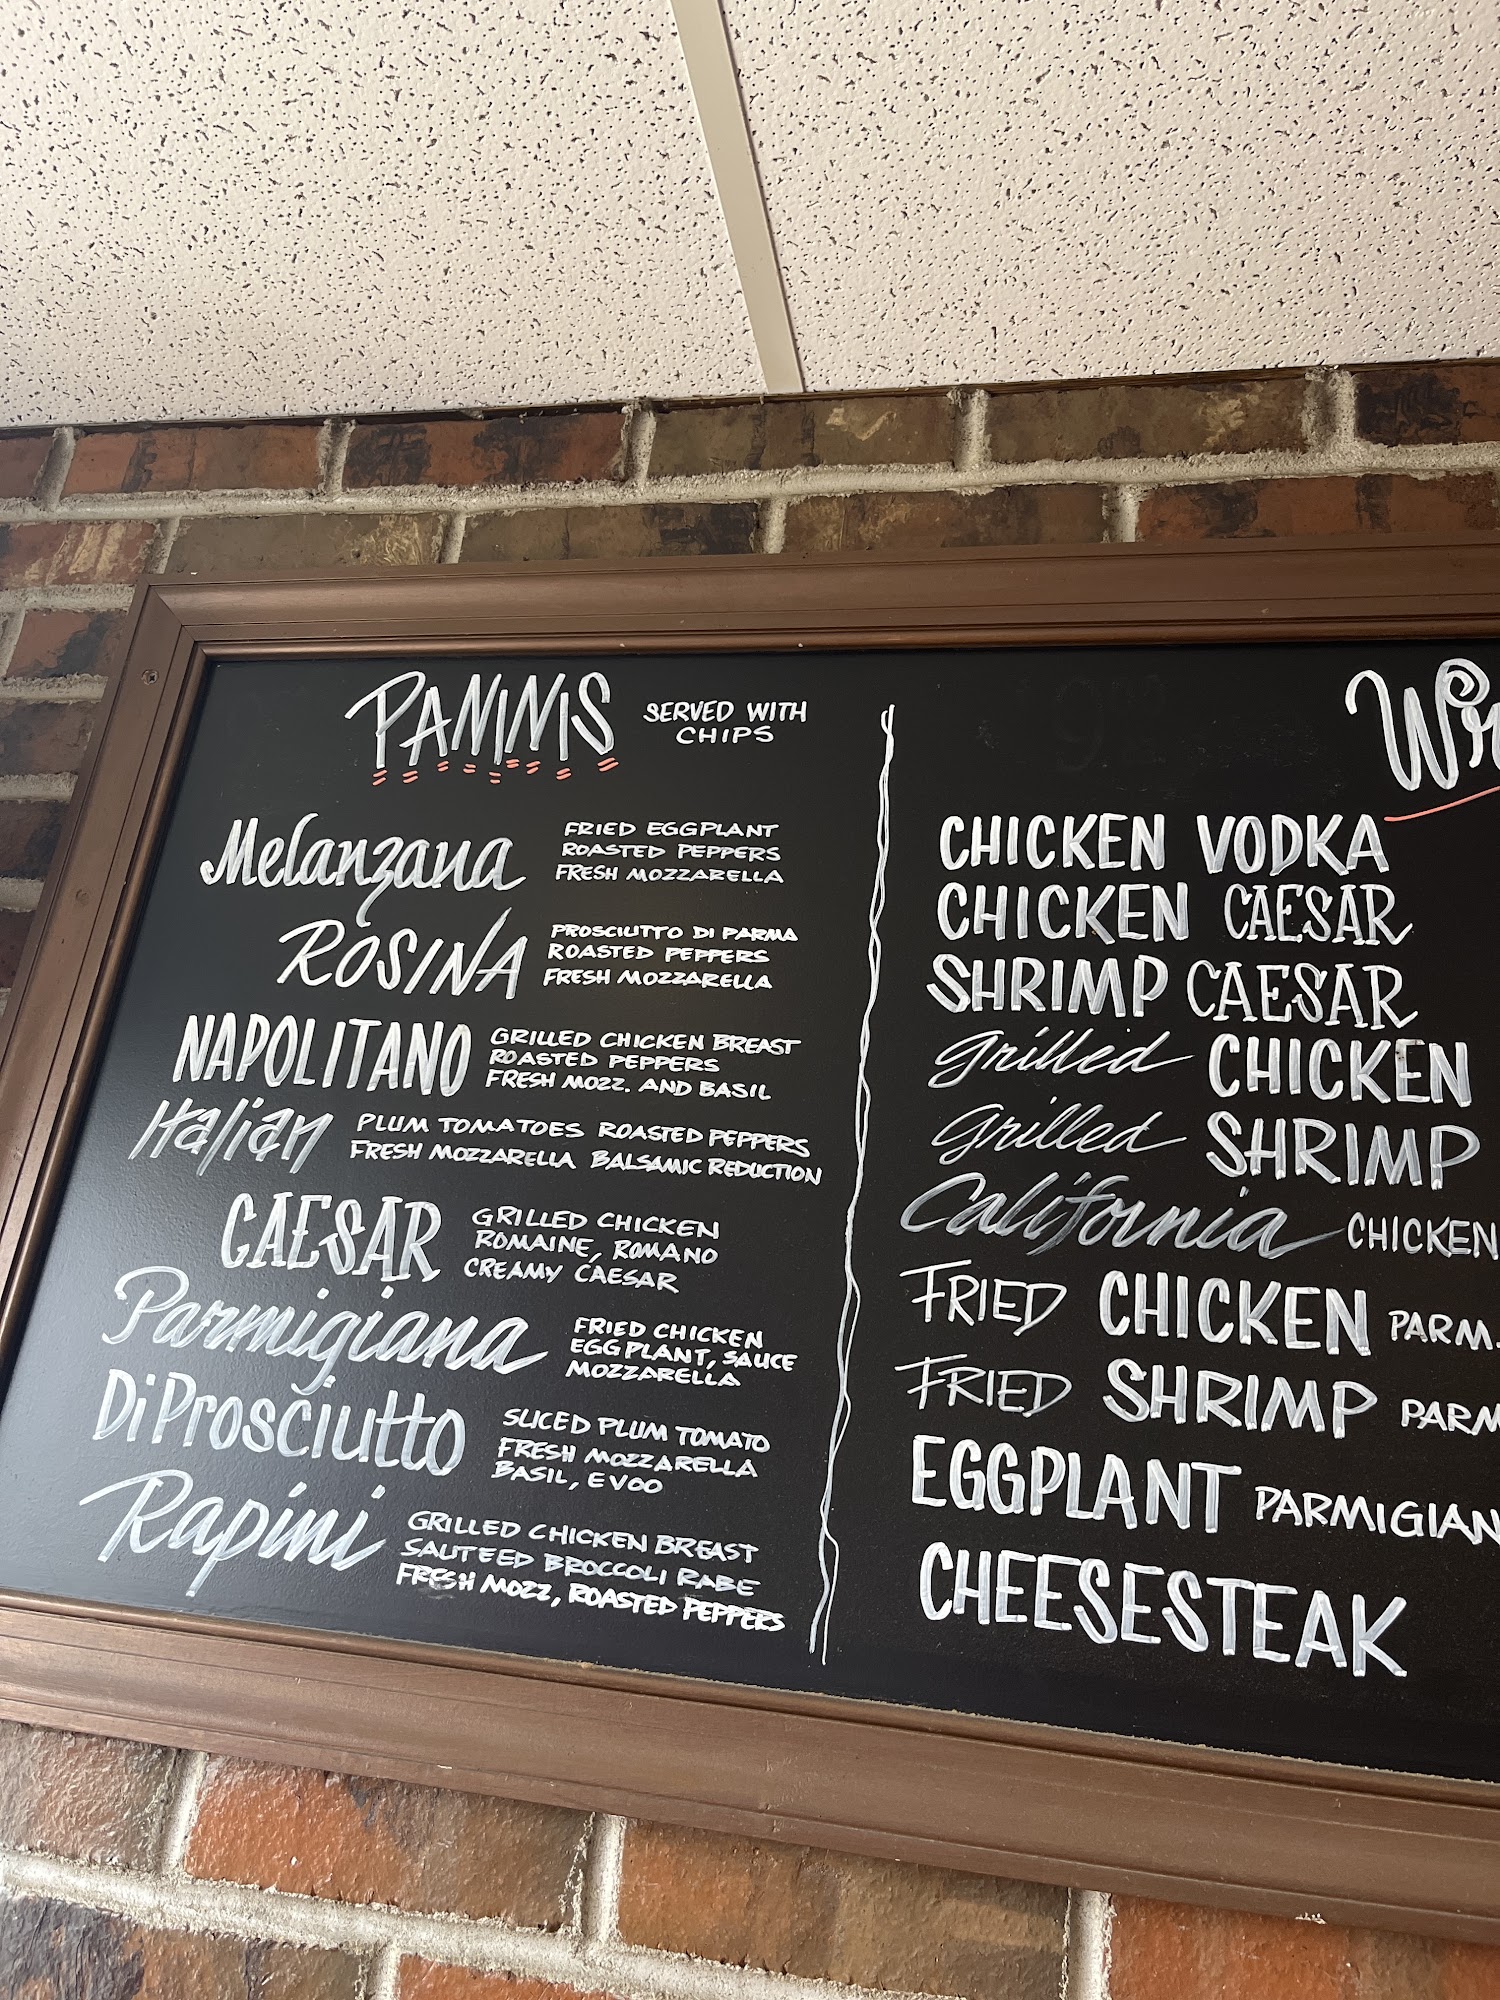 PANINIS SERVED WITH
CHIPS
Melanzana FRIED EGGPLANT
ROASTED PEPPERS
FRESH MOZZARELLA
ROSINA PROSCIUTTO DI PARMA
ROASTED PEPPERS
FRESH MOZZARELLA
NAPOLITANO GRILLED CHICKEN BREAST
ROASTED PEPPERS
FRESH MOZZ. AND BASIL
Italian PLUM TOMATOES ROASTED PEPPERS
FRESH MOZZARELLA BALSAMIC REDUCTION
CAESAR GRILLED CHICKEN
ROMAINE, ROMANO
CREAMY CAESAR
Parmigiana FRIED CHICKEN
EGGPLANT, SAUCE
MOZZARELLA
Di Prosciutto SLICED PLUM TOMATO
FRESH MOZZARELLA
BASIL, EVOO
Rapini GRILLED CHICKEN BREAST
SAUTEED BROCCOLI RABE
FRESH MOZZ, ROASTED PEPPERS
CHICKEN VODKA
CHICKEN CAESAR
SHRIMP CAESAR
Grilled CHICKEN
Grilled SHRIMP
California CHICKEN
FRIED CHICKEN PARM.
FRIED SHRIMP PARM
EGGPLANT PARMIGIAN
CHEESESTEAK